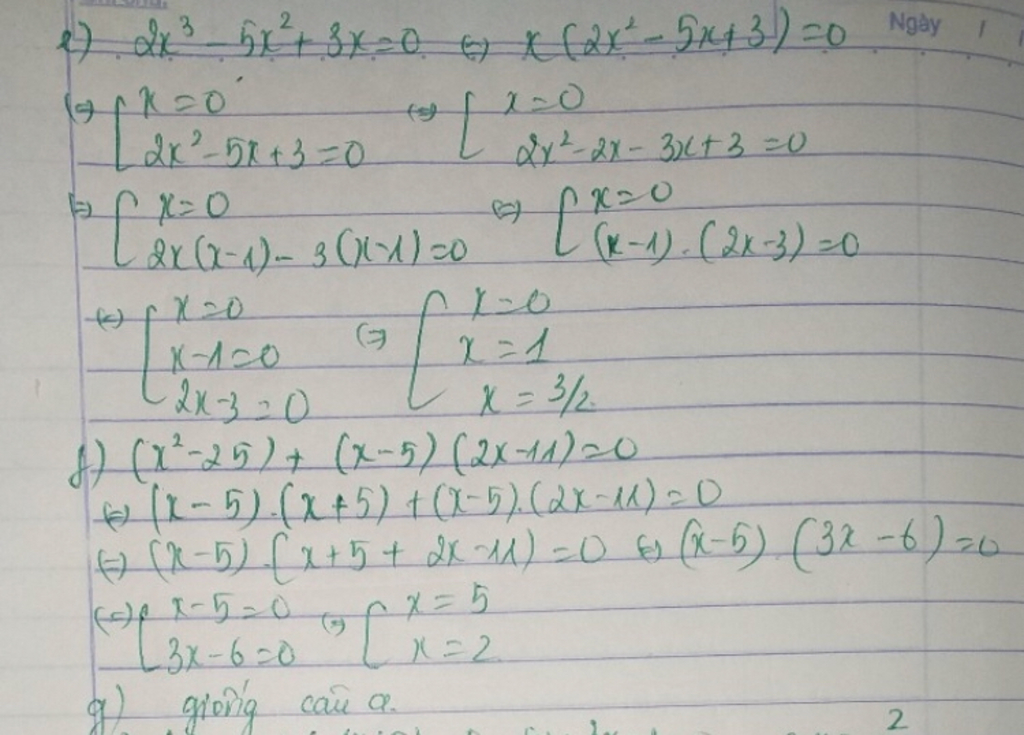 Ngày
e) 2x³ - 5x² + 3x = 0 ⇔ x (2x² - 5x + 3) = 0
⇔ [ x = 0 ⇔ [ x = 0
2x² - 5x + 3 = 0 2x² - 2x - 3x + 3 = 0
⇔ [ x = 0 ⇔ [ x = 0
2x (x - 1) - 3 (x - 1) = 0 (x - 1) . (2x - 3) = 0
⇔ [ x = 0 ⇔ [ x = 0
x - 1 = 0 x = 1
2x - 3 = 0 x = 3/2
f) (x² - 25) + (x - 5) (2x - 11) = 0
⇔ (x - 5) . (x + 5) + (x - 5) . (2x - 11) = 0
⇔ (x - 5) . (x + 5 + 2x - 11) = 0 ⇔ (x - 5) . (3x - 6) = 0
⇔ [ x - 5 = 0 ⇔ [ x = 5
3x - 6 = 0 x = 2
g) giống câu a.
2